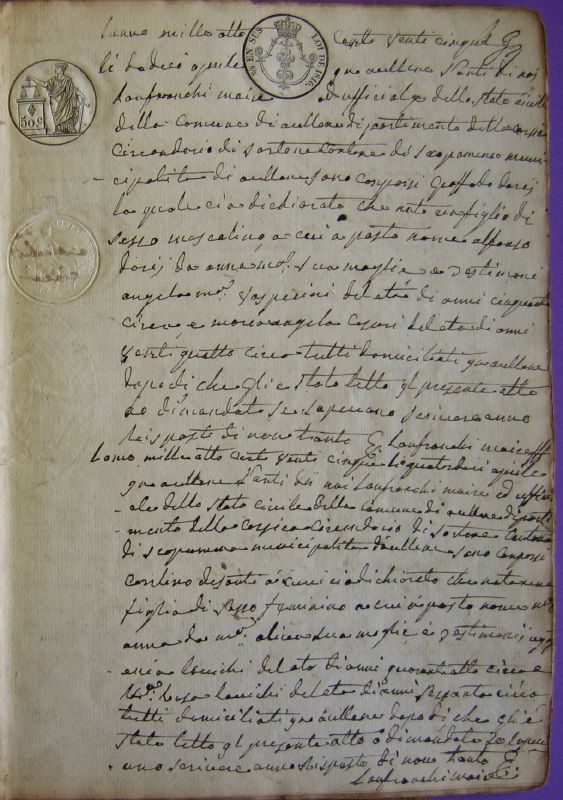 Lanno mille otto cento venti cinque
li dodeci aprile qua aullene Venti di noi
Lanfranchi maire ed ufficiale dello stato civile
della Comune di aullene dipartimento della Corsica
circondario di Sartene Contone di Scopamene muni-
cipalita di aullene sono comparsi Goffredo dorij
la quale ci a dichiarato che nato un figlio di
sesso mascolino a cui a posto nome alfonso
dorij da anna mª sua moglie e Testimoni
angelo mª gasperini del eta di anni cinquanta
circa e marco angelo Cesari del eta di anni
venti quattro circa tutti domiciliati qua aullene
dopo di che gli e stato letto il presente atto
e dimandato se sapevano scrivere anno
risposto di non tanto Lanfranchi maire
Lanno mille otto cento venti cinque li quatordeci aprile
qua aullene Venti di noi Lanfranchi maire ed uffici-
ale dello stato civile della Comune di aullene diparti-
mento della Corsica circondario di Sartene Contone
di scopamene municipalita di aullene sono comparsi
di Santi ci a dichiarato che nato una
figlia di sesso feminino a cui a posto nome mª
anna da mª sua moglie e Testimonij
Lucchi del eta di anni quaranta otto circa e
Lucchi del eta di anni sessanta circa
tutti domiciliati qua aullene dopo di che gli e
stato letto il presente atto e dimandato se sapev-
ano scrivere anno risposto di non tanto
Lanfranchi maire
EN SUS
LOI DE 1816
50 c